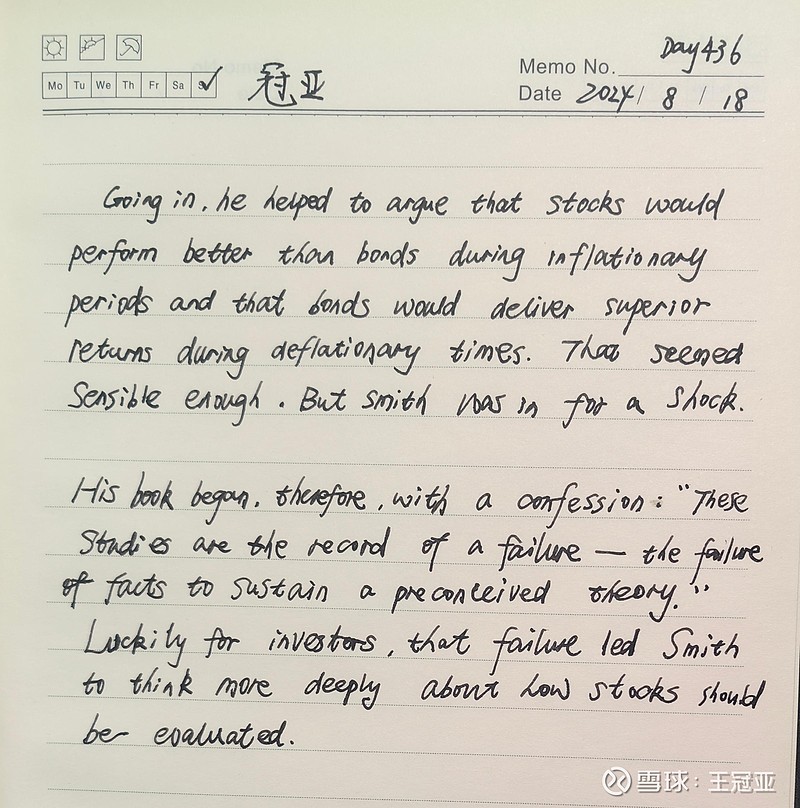 Mo Tu We Th Fr Sa S✓
冠亚
Memo No. Day436
Date 2024 / 8 / 18
Going in, he helped to argue that stocks would
perform better than bonds during inflationary
periods and that bonds would deliver superior
returns during deflationary times. That seemed
Sensible enough. But Smith was in for a Shock.
His book began, therefore, with a confession: "These
Studies are the record of a failure — the failure
of facts to sustain a preconceived theory."
Luckily for investors, that failure led Smith
to think more deeply about how stocks should
be evaluated.
雪球:王冠亚